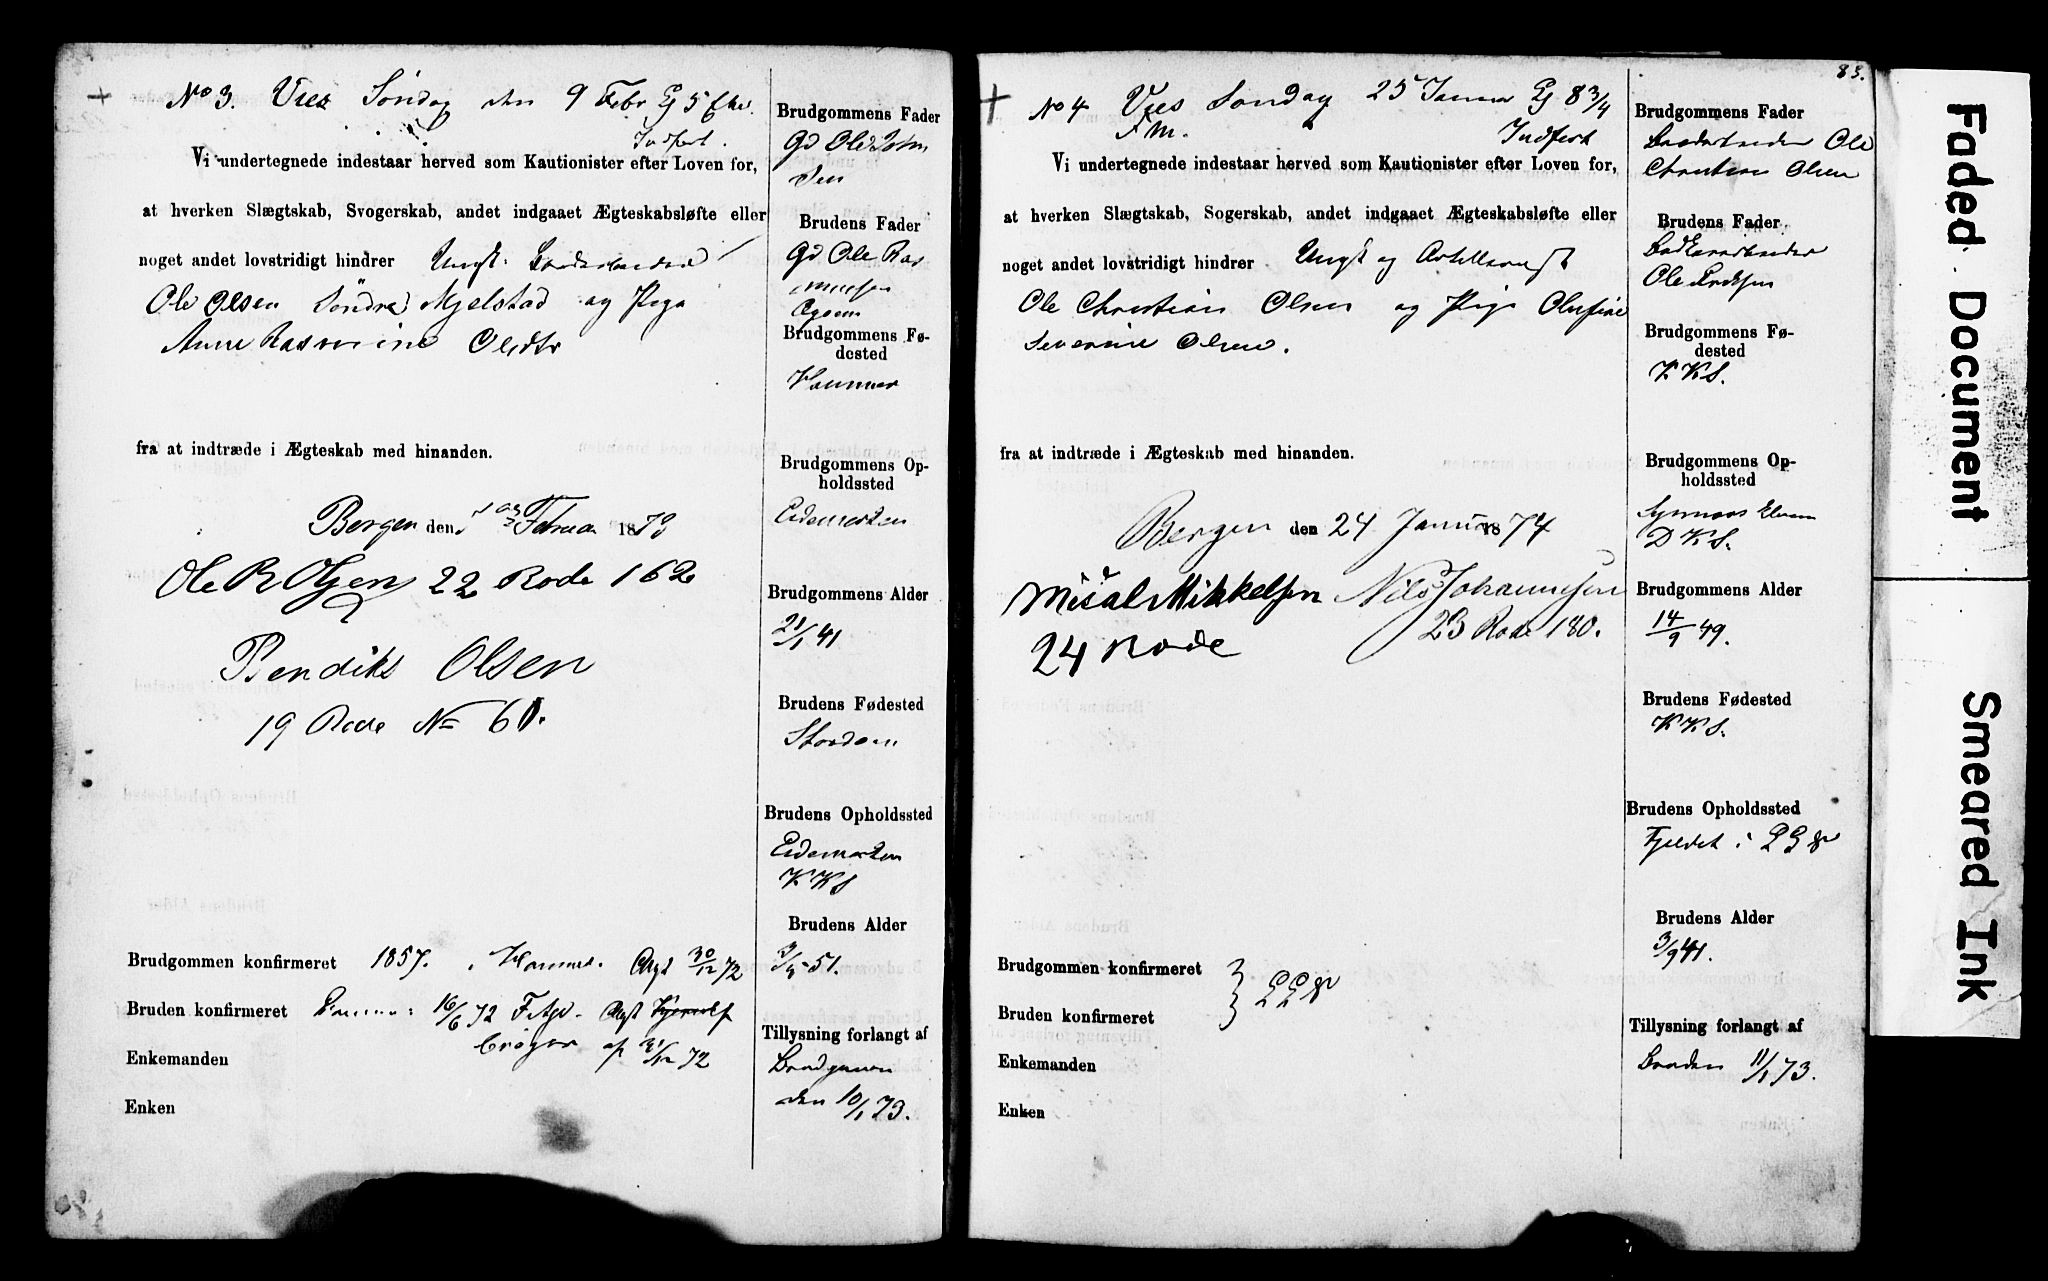 No 3. Vies Søndag den 9 Febr Kl 5 Efm.
Indført.
Vi undertegnede indestaar herved som Kautionister efter Loven for,
at hverken Slægtskab, Svogerskab, andet indgaaet Ægteskabsløfte eller
noget andet lovstridigt hindrer Ungk:
Ole Olsen Søndre Mjelstad og Pige
Anne Rasmine Olsdtr
fra at indtræde i Ægteskab med hinanden.
Bergen den Februar 1873
Ole R Olsen 22 Rode 162
Bendiks Olsen
19 Rode No 61.
Brudgommen konfirmeret 1857. i Hammer. Attst 30/12 72
Bruden konfirmeret 16/6 72 Attst
af 31/12 72
Enkemanden
Enken
Brudgommens Fader
Gd Ole John
sen
Brudens Fader
Gd Ole Ras
mussen
Brudgommens Fø-
dested
Hammer
Brudgommens Op-
holdssted
Eidemarken
Brudgommens Alder
21/1 41
Brudens Fødested
Stordøen
Brudens Opholdssted
Eidemarken
KKS
Brudens Alder
51.
Tillysning forlangt af
Brudgommen
den 10/1 73.
83.
No 4 Vies Søndag 25 Januar Kl 8 3/4
F M. Indført
Vi undertegnede indestaar herved som Kautionister efter Loven for,
at hverken Slægtskab, Sogerskab, andet indgaaet Ægteskabsløfte eller
noget andet lovstridigt hindrer Ungk og
Ole Christian Olsen og Pige Olufine
Severine Olsen.
fra at indtræde i Ægteskab med hinanden.
Bergen den 24 Januar 1874
Misal Mikkelsen Nils Johannesen
24 Rode 23 Rode 180.
Brudgommen konfirmeret
Bruden konfirmeret
Enkemanden
Enken
Brudgommens Fader
Ole
Christian Olsen
Brudens Fader
Ole
Brudgommens Fø-
dested
KKS.
Brudgommens Op-
holdssted
DKS.
Brudgommens Alder
14/9 49.
Brudens Fødested
KKS.
Brudens Opholdssted
Fjeldet i 23 R
Brudens Alder
3/9 41.
Tillysning forlangt af
Bruden 11/1 73.
Faded Document
Smeared Ink